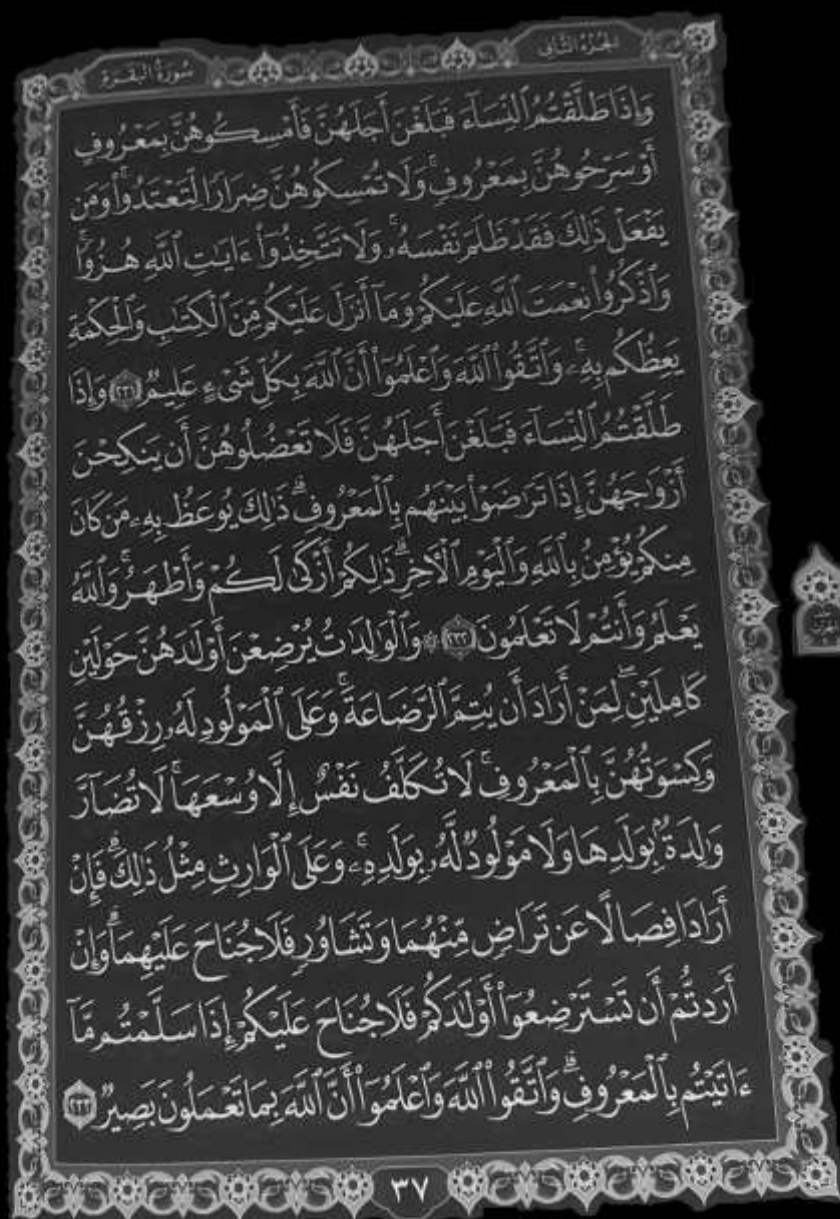 الجزء الثاني
سورة البقرة
وَإِذَا طَلَّقْتُمُ ٱلنِّسَآءَ فَبَلَغْنَ أَجَلَهُنَّ فَأَمْسِكُوهُنَّ بِمَعْرُوفٍ
أَوْ سَرِّحُوهُنَّ بِمَعْرُوفٍۚ وَلَا تُمْسِكُوهُنَّ ضِرَارًا لِّتَعْتَدُوا۟ۚ وَمَن
يَفْعَلْ ذَٰلِكَ فَقَدْ ظَلَمَ نَفْسَهُۥۚ وَلَا تَتَّخِذُوٓا۟ ءَايَٰتِ ٱللَّهِ هُزُوًاۚ
وَٱذْكُرُوا۟ نِعْمَتَ ٱللَّهِ عَلَيْكُمْ وَمَآ أَنزَلَ عَلَيْكُم مِّنَ ٱلْكِتَٰبِ وَٱلْحِكْمَةِ
يَعِظُكُم بِهِۦۚ وَٱتَّقُوا۟ ٱللَّهَ وَٱعْلَمُوٓا۟ أَنَّ ٱللَّهَ بِكُلِّ شَىْءٍ عَلِيمٌ ٢٣١ وَإِذَا
طَلَّقْتُمُ ٱلنِّسَآءَ فَبَلَغْنَ أَجَلَهُنَّ فَلَا تَعْضُلُوهُنَّ أَن يَنكِحْنَ
أَزْوَٰجَهُنَّ إِذَا تَرَٰضَوْا۟ بَيْنَهُم بِٱلْمَعْرُوفِۗ ذَٰلِكَ يُوعَظُ بِهِۦ مَن كَانَ
مِنكُمْ يُؤْمِنُ بِٱللَّهِ وَٱلْيَوْمِ ٱلْءَاخِرِۗ ذَٰلِكُمْ أَزْكَىٰ لَكُمْ وَأَطْهَرُۚ وَٱللَّهُ
يَعْلَمُ وَأَنتُمْ لَا تَعْلَمُونَ ٢٣٢ ۞ وَٱلْوَٰلِدَٰتُ يُرْضِعْنَ أَوْلَٰدَهُنَّ حَوْلَيْنِ
كَامِلَيْنِۖ لِمَنْ أَرَادَ أَن يُتِمَّ ٱلرَّضَاعَةَۚ وَعَلَى ٱلْمَوْلُودِ لَهُۥ رِزْقُهُنَّ
وَكِسْوَتُهُنَّ بِٱلْمَعْرُوفِۚ لَا تُكَلَّفُ نَفْسٌ إِلَّا وُسْعَهَاۚ لَا تُضَآرَّ
وَٰلِدَةٌۢ بِوَلَدِهَا وَلَا مَوْلُودٌ لَّهُۥ بِوَلَدِهِۦۚ وَعَلَى ٱلْوَارِثِ مِثْلُ ذَٰلِكَۗ فَإِنْ
أَرَادَا فِصَالًا عَن تَرَاضٍ مِّنْهُمَا وَتَشَاوُرٍ فَلَا جُنَاحَ عَلَيْهِمَاۗ وَإِنْ
أَرَدتُّمْ أَن تَسْتَرْضِعُوٓا۟ أَوْلَٰدَكُمْ فَلَا جُنَاحَ عَلَيْكُمْ إِذَا سَلَّمْتُم مَّآ
ءَاتَيْتُم بِٱلْمَعْرُوفِۗ وَٱتَّقُوا۟ ٱللَّهَ وَٱعْلَمُوٓا۟ أَنَّ ٱللَّهَ بِمَا تَعْمَلُونَ بَصِيرٌ ٢٣٣
٣٧